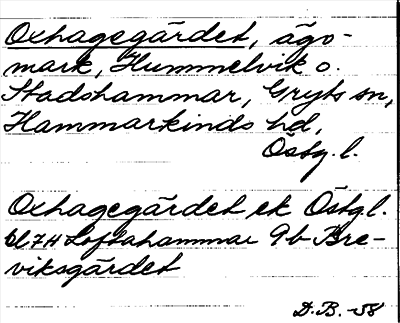 Oxhagegärdet, ägo-
mark, Hummelvik o.
Stadshammar, Gryts sn,
Hammarkinds hd,
Östg. l.
Oxhagegärdet ek Östgl.
bl 7H Loftahammar 9b Bre-
viksgärdet
D.B. -58